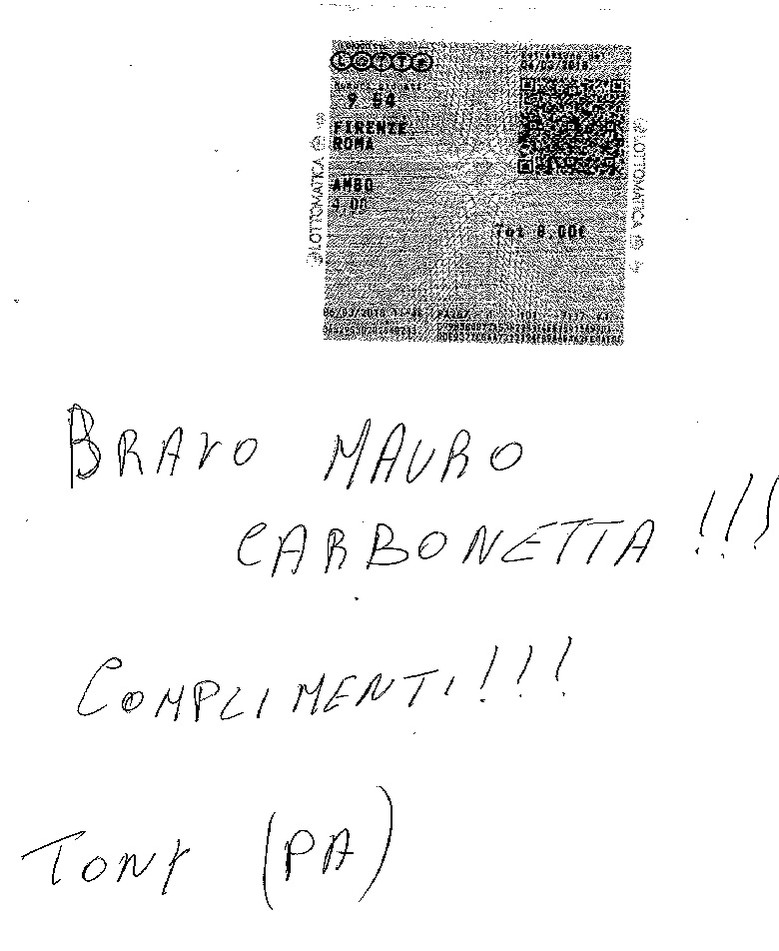 LOTTO
9 54
FIRENZE
ROMA
AMBO
4,00
Tot 8,00€
LOTTOMATICA
LOTTOMATICA
BRAVO MAURO
CARBONETTA !!!
COMPLIMENTI!!!
TONY (PA)